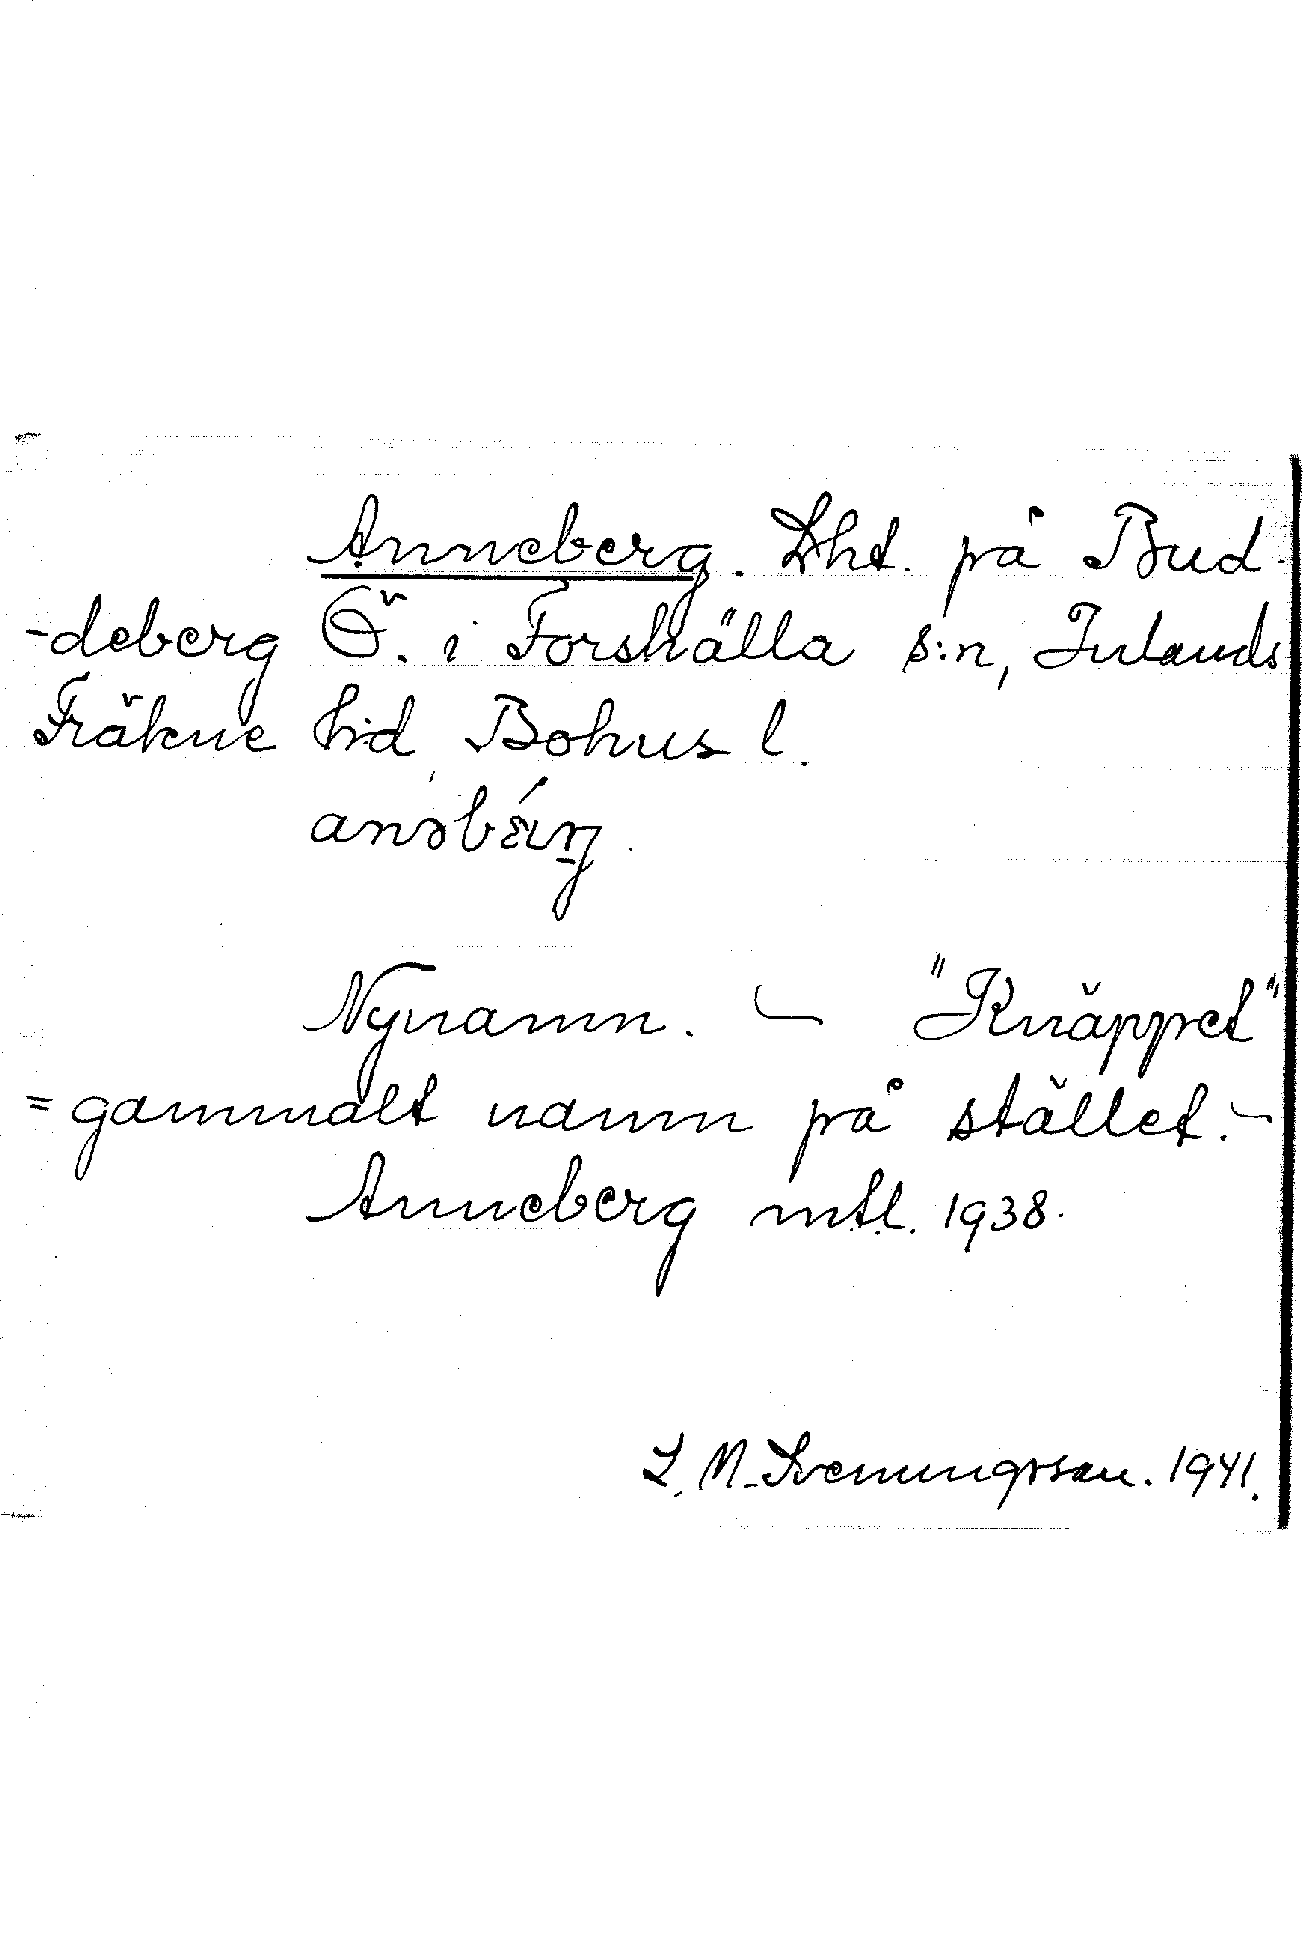 Anneberg. Lht. på Bud-
-deberg Ö. i Forshälla s:n, Inlands
Fräkne hd, Bohus l.
Nynamn. — "Knäppet"
=gammalt namn på stället. —
Anneberg mtl. 1938.
L. N. Svenungsson. 1941.